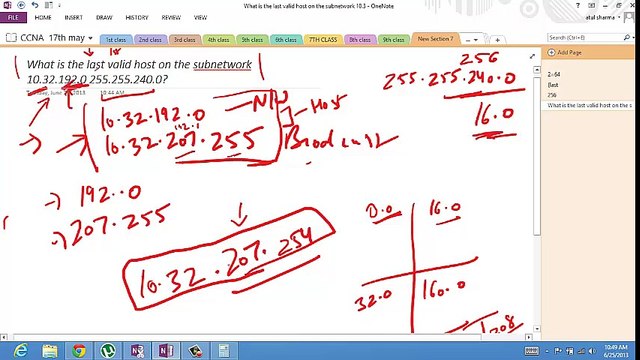 What is the last valid host on the subnetwork 10.3 - OneNote
atul sharma
FILE HOME INSERT DRAW HISTORY REVIEW VIEW
CCNA 17th may
1st class
2nd class
3rd class
4th class
5th class
6th class
7TH CLASS
8th class
9th class
New Section 7
Add Page
2--64
256
What is the last valid host on the s
What is the last valid host on the subnetwork
10.32.192.0 255.255.240.0?
10:44 AM
256
255.255.240.0
16.0
10.32.192.0
N/W
Host
192.1
10.32.207.255
Broadcast
192..0
207.255
10.32.207.254
0.0
16.0
32.0
160.0
208
10:49 AM
6/25/2013